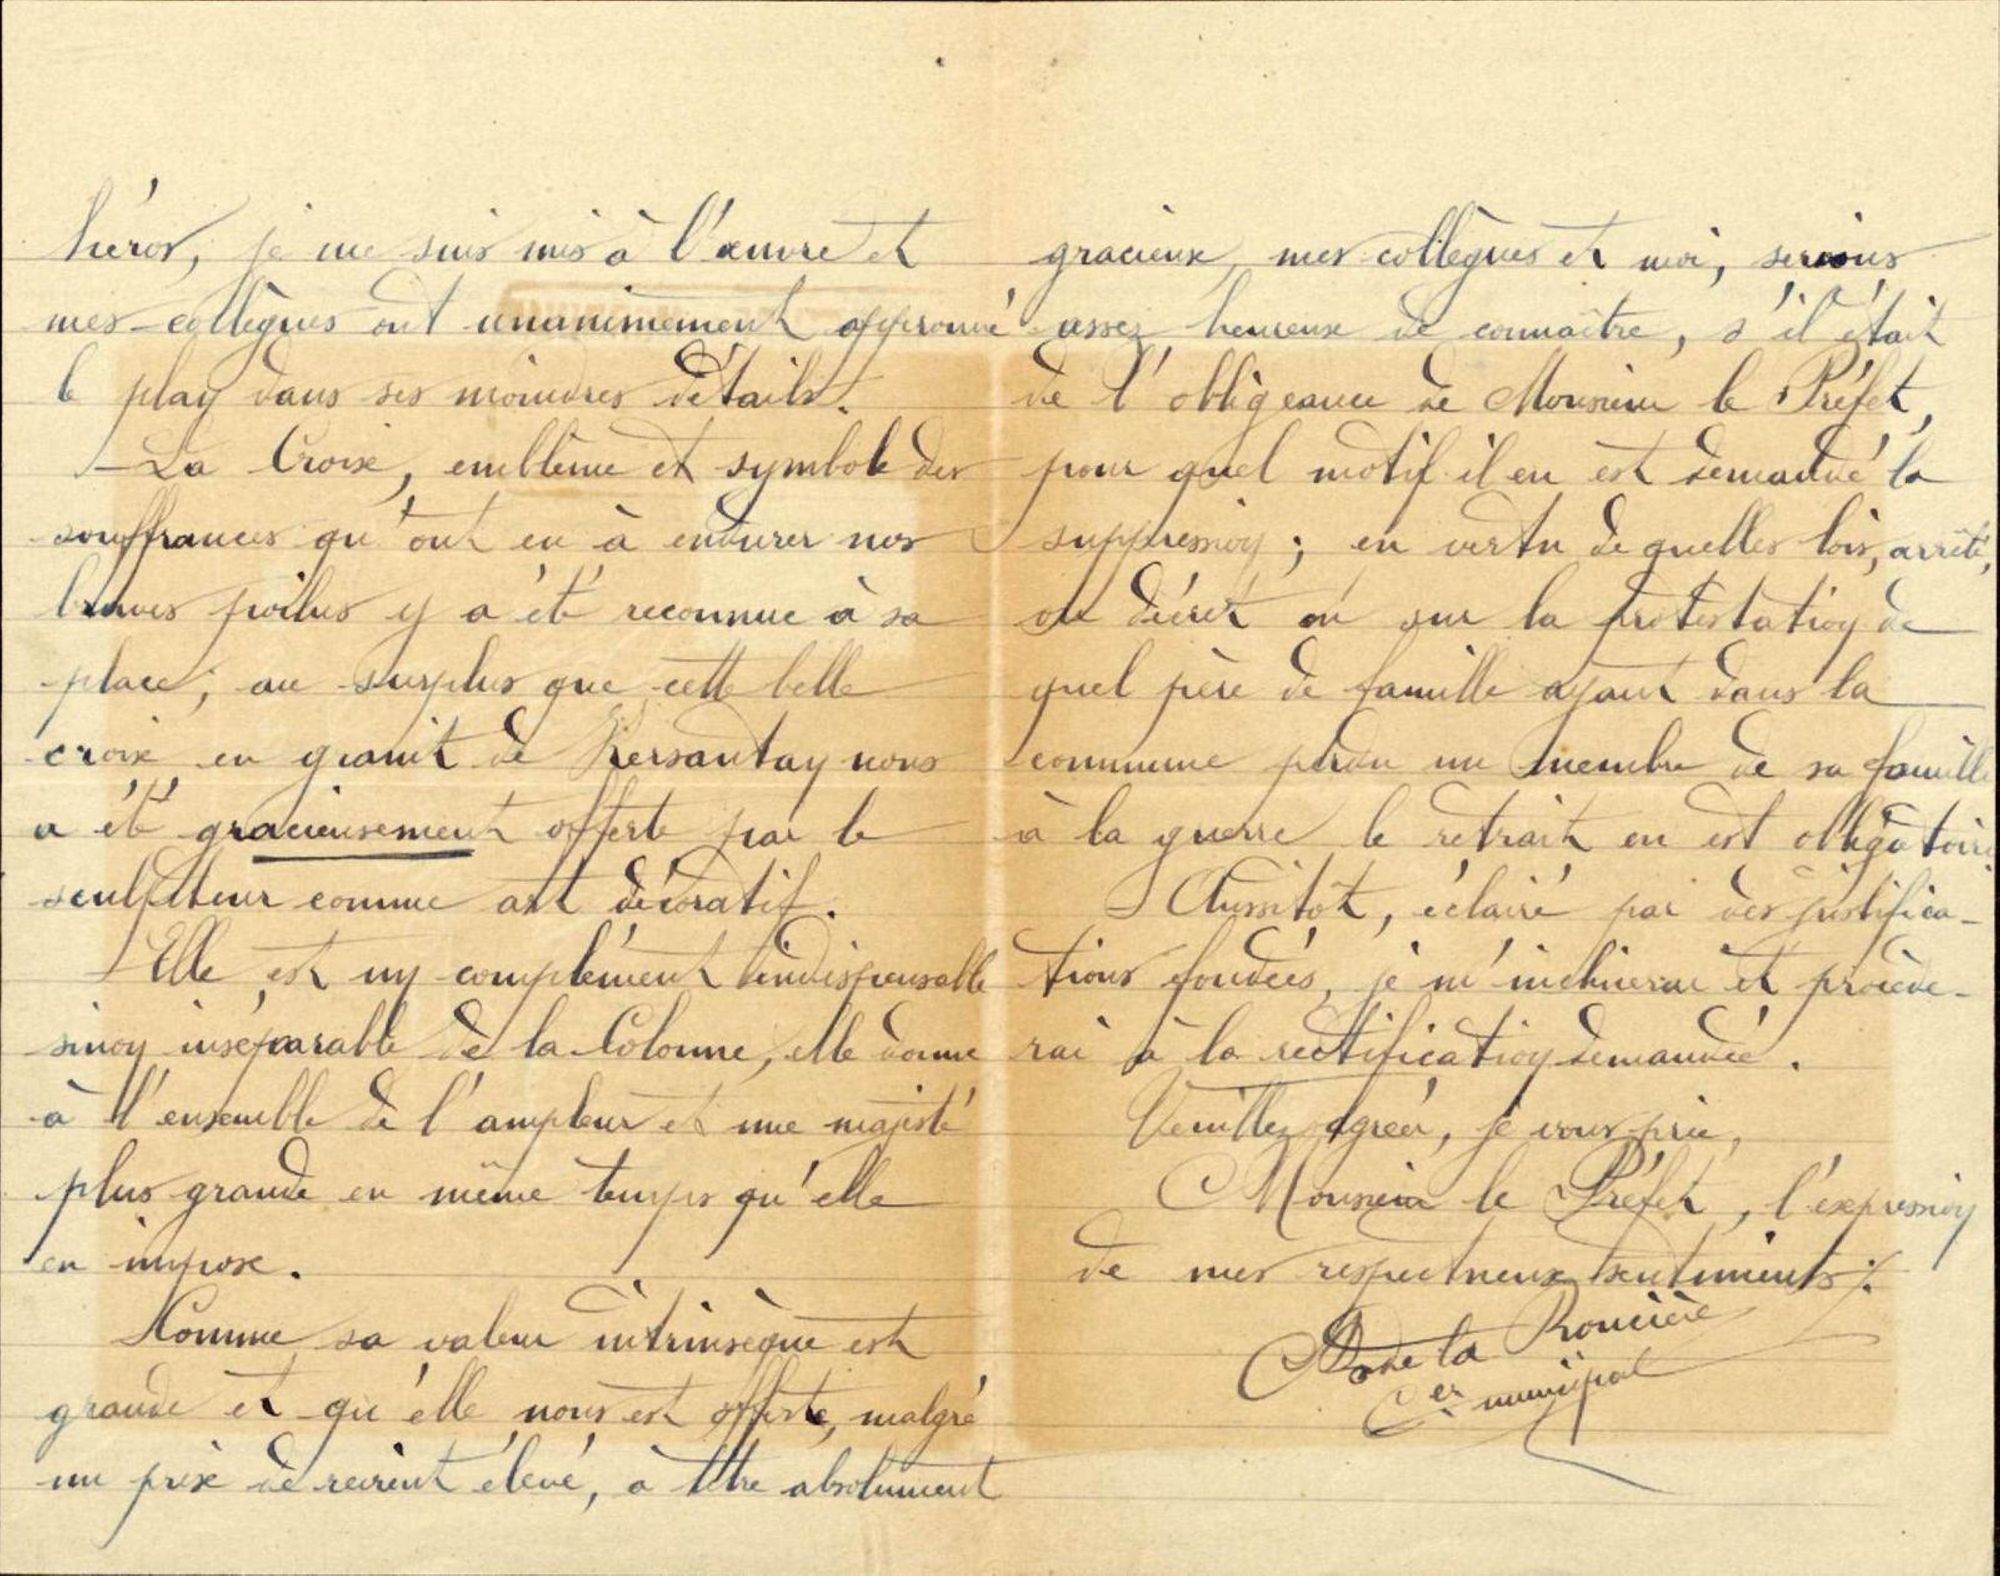 héros, je me suis mis à l'œuvre et
mes collègues ont unanimement approuvé
le plan dans ses moindres détails.
La Croix, emblème et symbole des
souffrances qu'ont eu à endurer nos
braves poilus y a été reconnue à sa
place; au surplus que cette belle
croix en granit de Kersantay nous
a été gracieusement offerte par le
sculpteur comme art décoratif.
Elle est un complément indispensable
sinon inséparable de la Colonne, elle donne
à l'ensemble de l'ampleur et une majesté
plus grande en même temps qu'elle
en impose.
Comme sa valeur intrinsèque est
grande et qu'elle nous est offerte, malgré
un prix de revient élevé, à titre absolument
gracieux, mes collègues et moi, serions
assez heureux de connaître, s'il était
de l'obligeance de Monsieur le Préfet,
pour quel motif il en est demandé la
suppression; en vertu de quelles lois, arrêté,
ou décret ou sur la protestation de
quel père de famille ayant dans la
commune perdu un membre de sa famille
à la guerre le retrait en est obligatoire
Aussitôt, éclairé par des justifica-
tions fondées, je m'inclinerai et procède-
rai à la rectification demandée.
Veuillez agréer, je vous prie,
Monsieur le Préfet, l'expression
de mes respectueux sentiments ./.
de la Roncière
Cer municipal